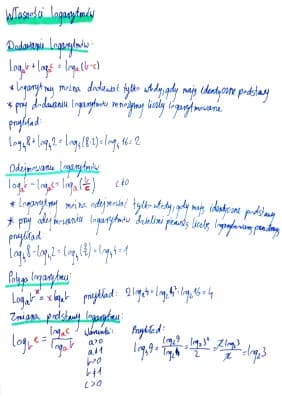 Własności logarytmów
Dodawanie logarytmów:
logₐb + logₐc = logₐ(b·c)
* logarytmy można dodawać tylko wtedy, gdy mają identyczne podstawy
* przy dodawaniu logarytmów mnożymy liczby logarytmowane
przykład:
log₄8 + log₄2 = log₄(8·2) = log₄16 = 2
Odejmowanie logarytmów
logₐb - logₐc = logₐ(b/c) c≠0
* logarytmy można odejmować tylko wtedy, gdy mają identyczne podstawy
* przy odejmowaniu logarytmów dzielimy pierwszą liczbę logarytmowaną przez
przykład:
log₄8 - log₄2 = log₄(8/2) = log₄4 = 1
Potęga logarytmu:
logₐbˣ = x logₐb przykład: 2log₂4 = log₂4² = log₂16 = 4
Zmiana podstawy logarytmu:
log_b c = logₐc / logₐb Warunki: Przykład:
a>0 log₄9 = log₂9 / log₂4 = log₂3² / 2 = 2log₂3 / 2 = log₂3
a≠1
b>0
b≠1
c>0